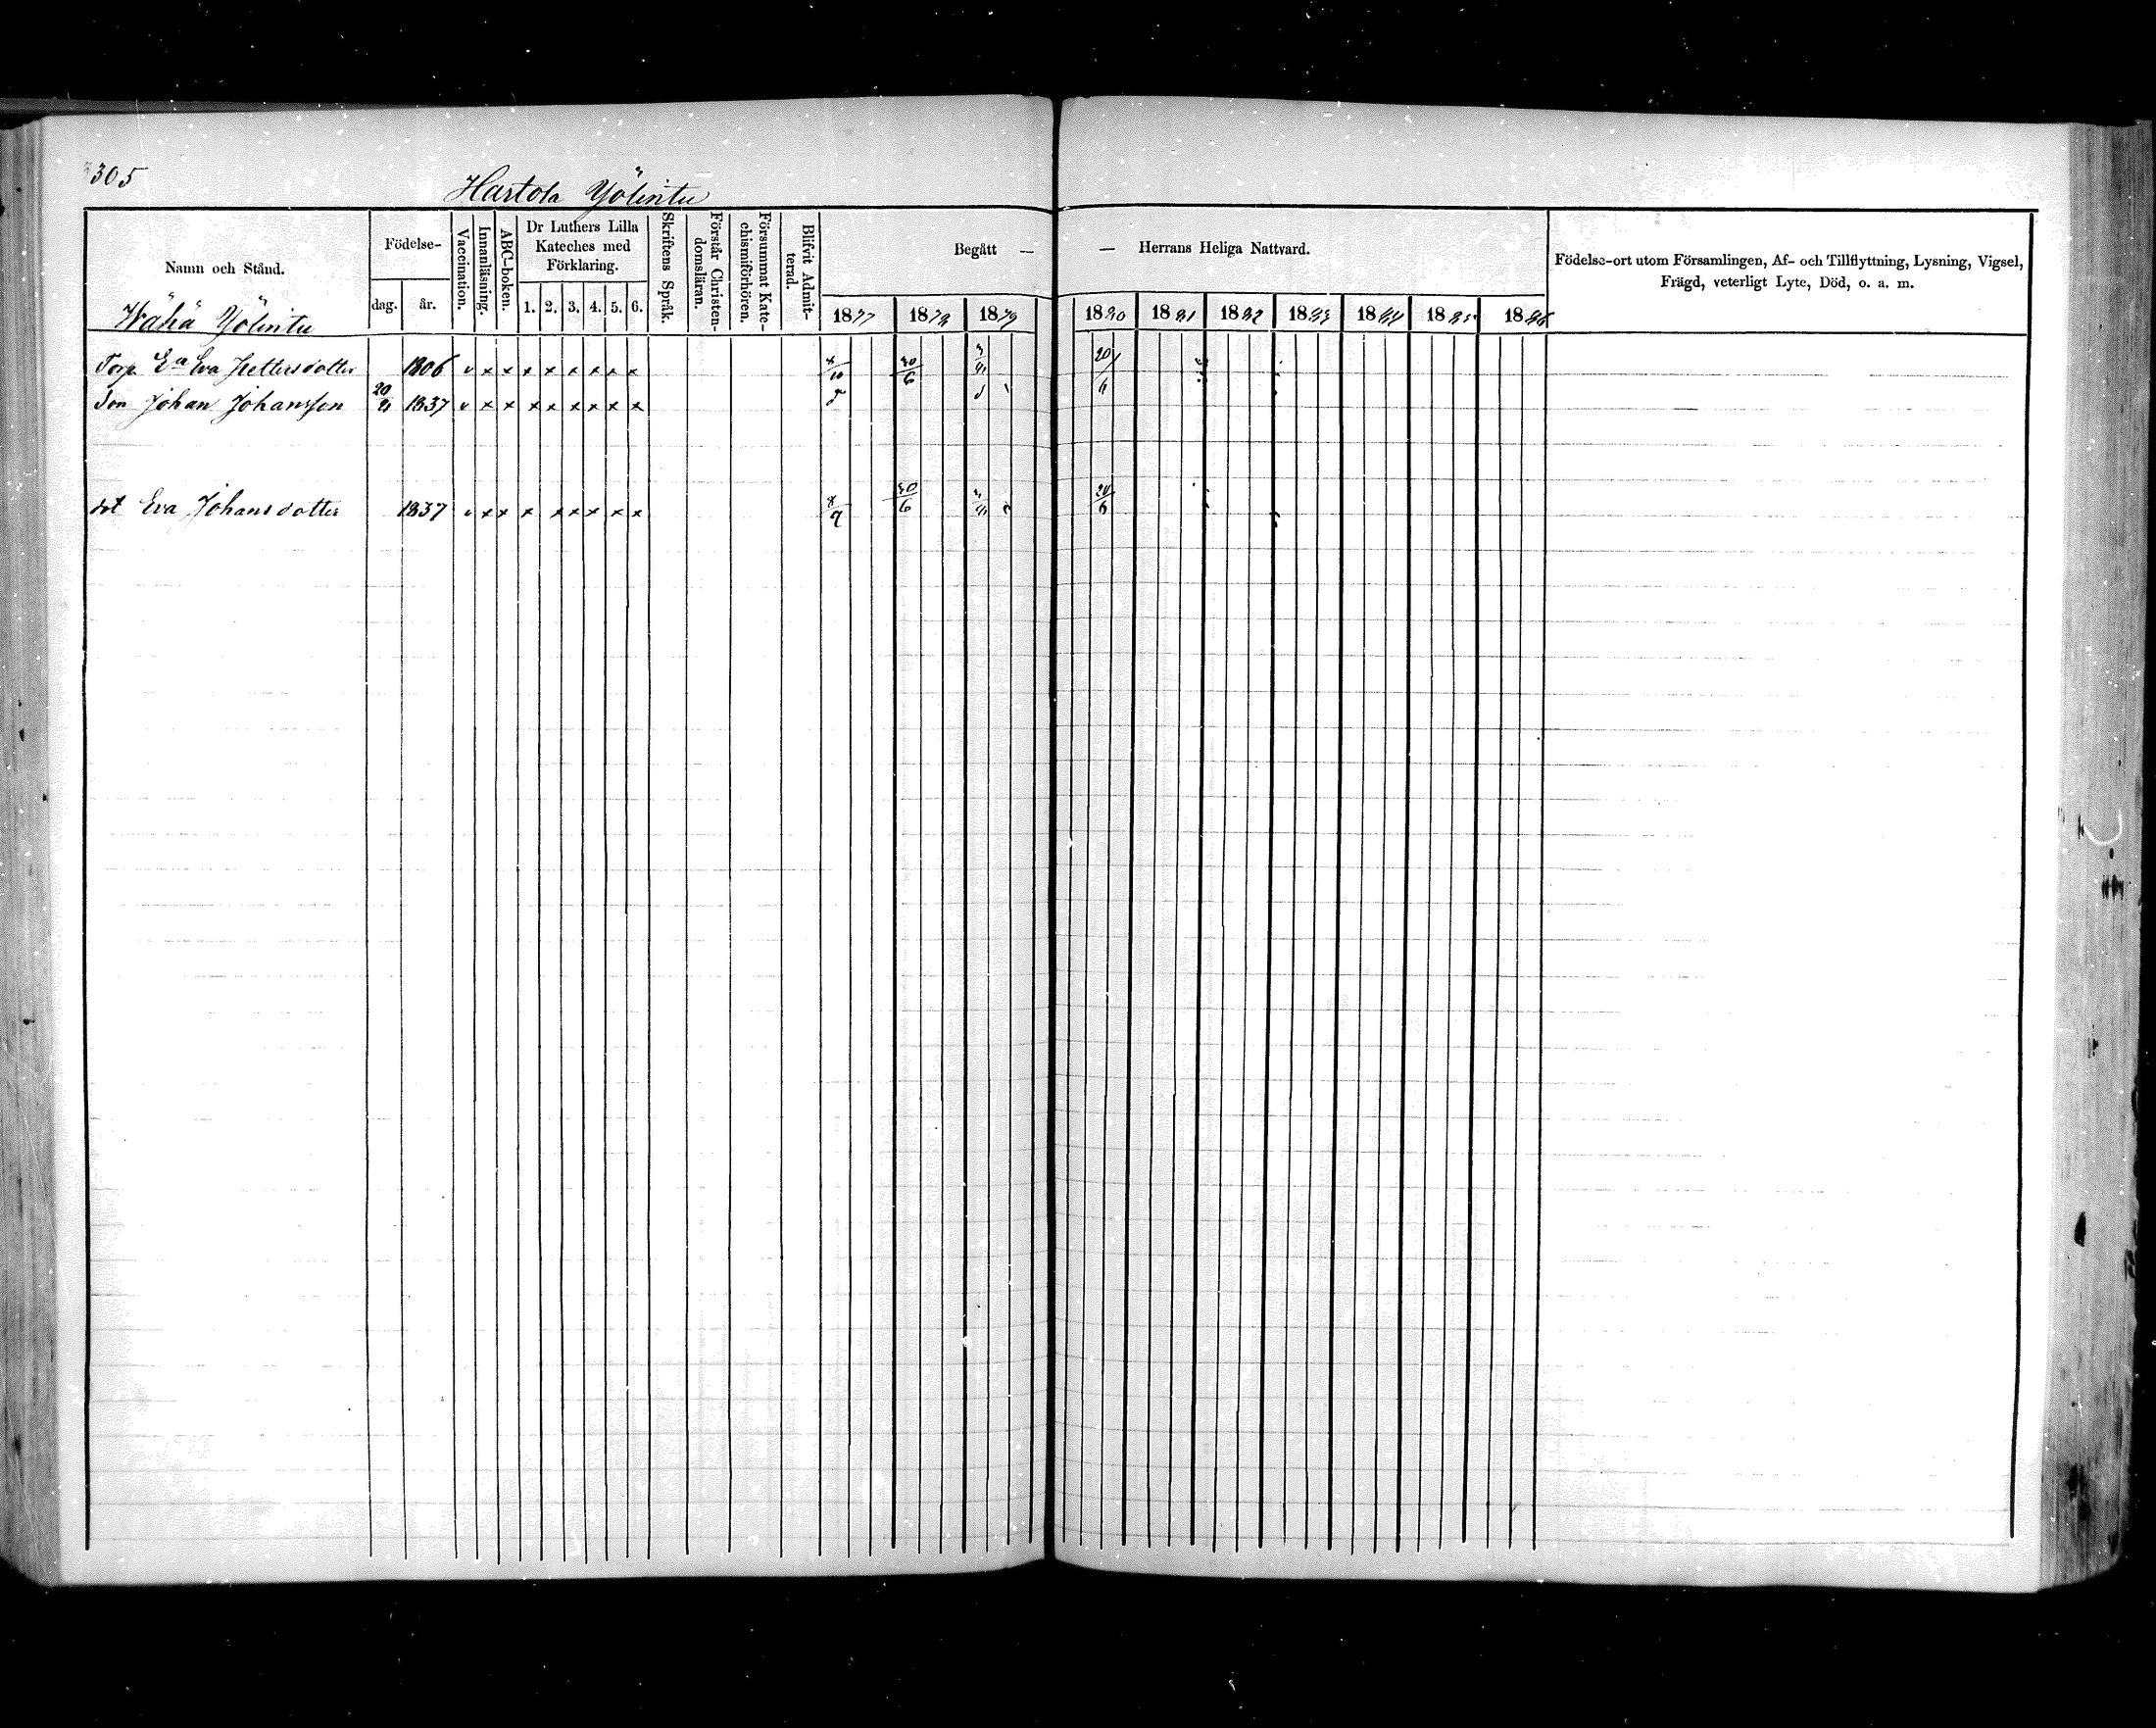 305
Hartola Yölintu
Namn och Stånd.
Födelse-
dag.
år.
Vaccination.
Innanläsning.
ABC-boken.
Dr Luthers Lilla
Kateches med
Förklaring.
1. 2. 3. 4. 5. 6.
Skriftens Språk.
Förstår Christen-
domsläran.
Försummat Kate-
chismiförhören.
Blifvit Admit-
terad.
Begått —
— Herrans Heliga Nattvard.
1877 1878 1879 1880 1881 1882 1883 1884 1885 1886
Födelse-ort utom Församlingen, Af- och Tillflyttning, Lysning, Vigsel,
Frägd, veterligt Lyte, Död, o. a. m.
Wähä Yölintu
Torp Ea Eva Pettersdotter 1806 v x x x x x x x x 30/6 20/6
Son Johan Johansson 1837 v x x x x x x x x
dot Eva Johansdotter 1837 v x x x x x x x x 30/6 20/6